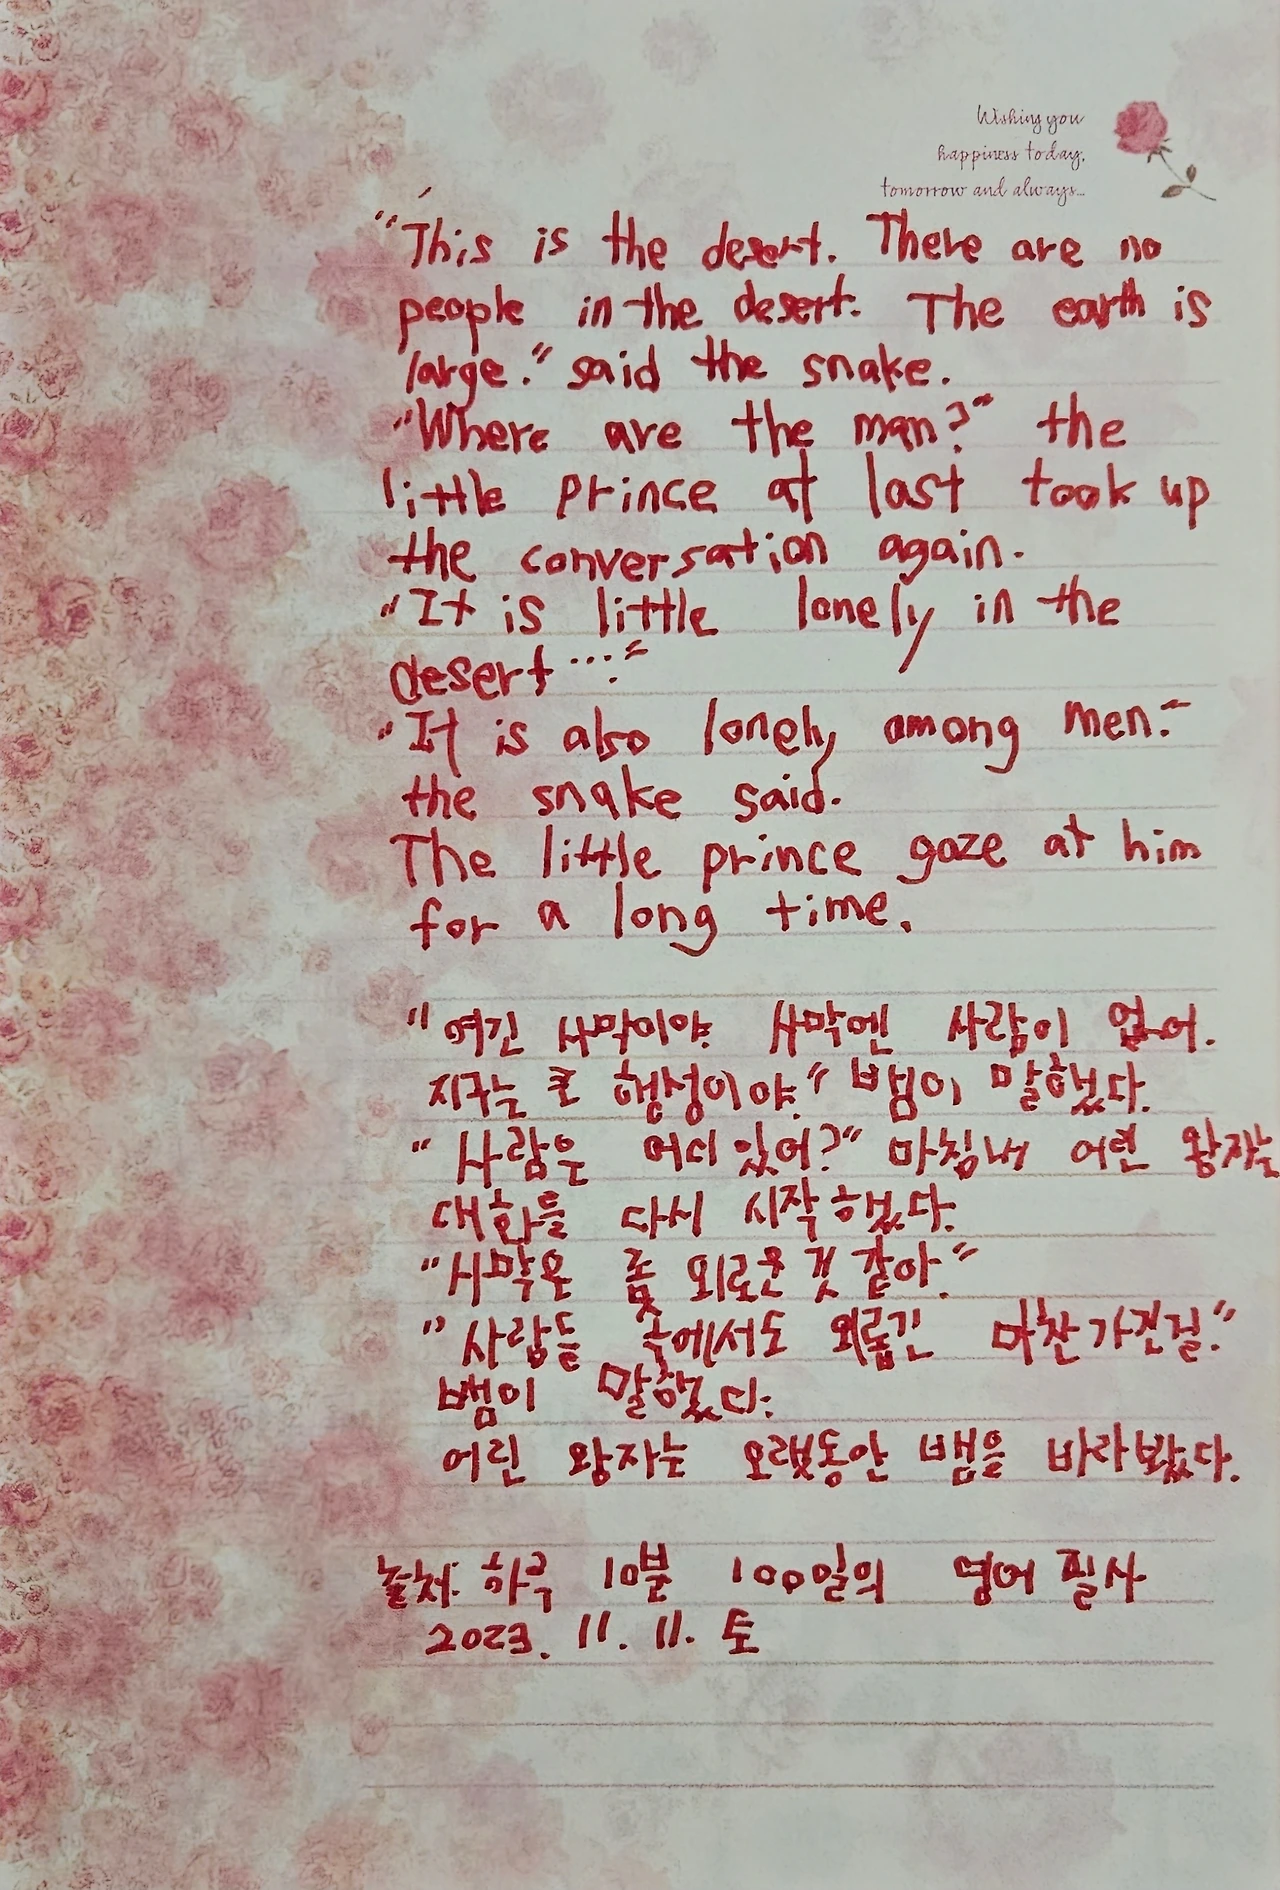 Wishing you
happiness today,
tomorrow and always...
"This is the desert. There are no
people in the desert. The earth is
large." said the snake.
"Where are the man?" the
little prince at last took up
the conversation again.
"It is little lonely in the
desert ...."
"It is also lonely among men."
the snake said.
The little prince gaze at him
for a long time.
"여긴 사막이야. 사막엔 사람이 없어.
지구는 큰 행성이야." 뱀이 말했다.
"사람은 어디 있어?" 마침내 어린 왕자는
대화를 다시 시작했다.
"사막은 좀 외로운 것 같아."
"사람들 속에서도 외롭긴 마찬가진걸."
뱀이 말했다.
어린 왕자는 오랫동안 뱀을 바라봤다.
출처: 하루 10분 100일의 영어 필사
2023. 11. 11. 토